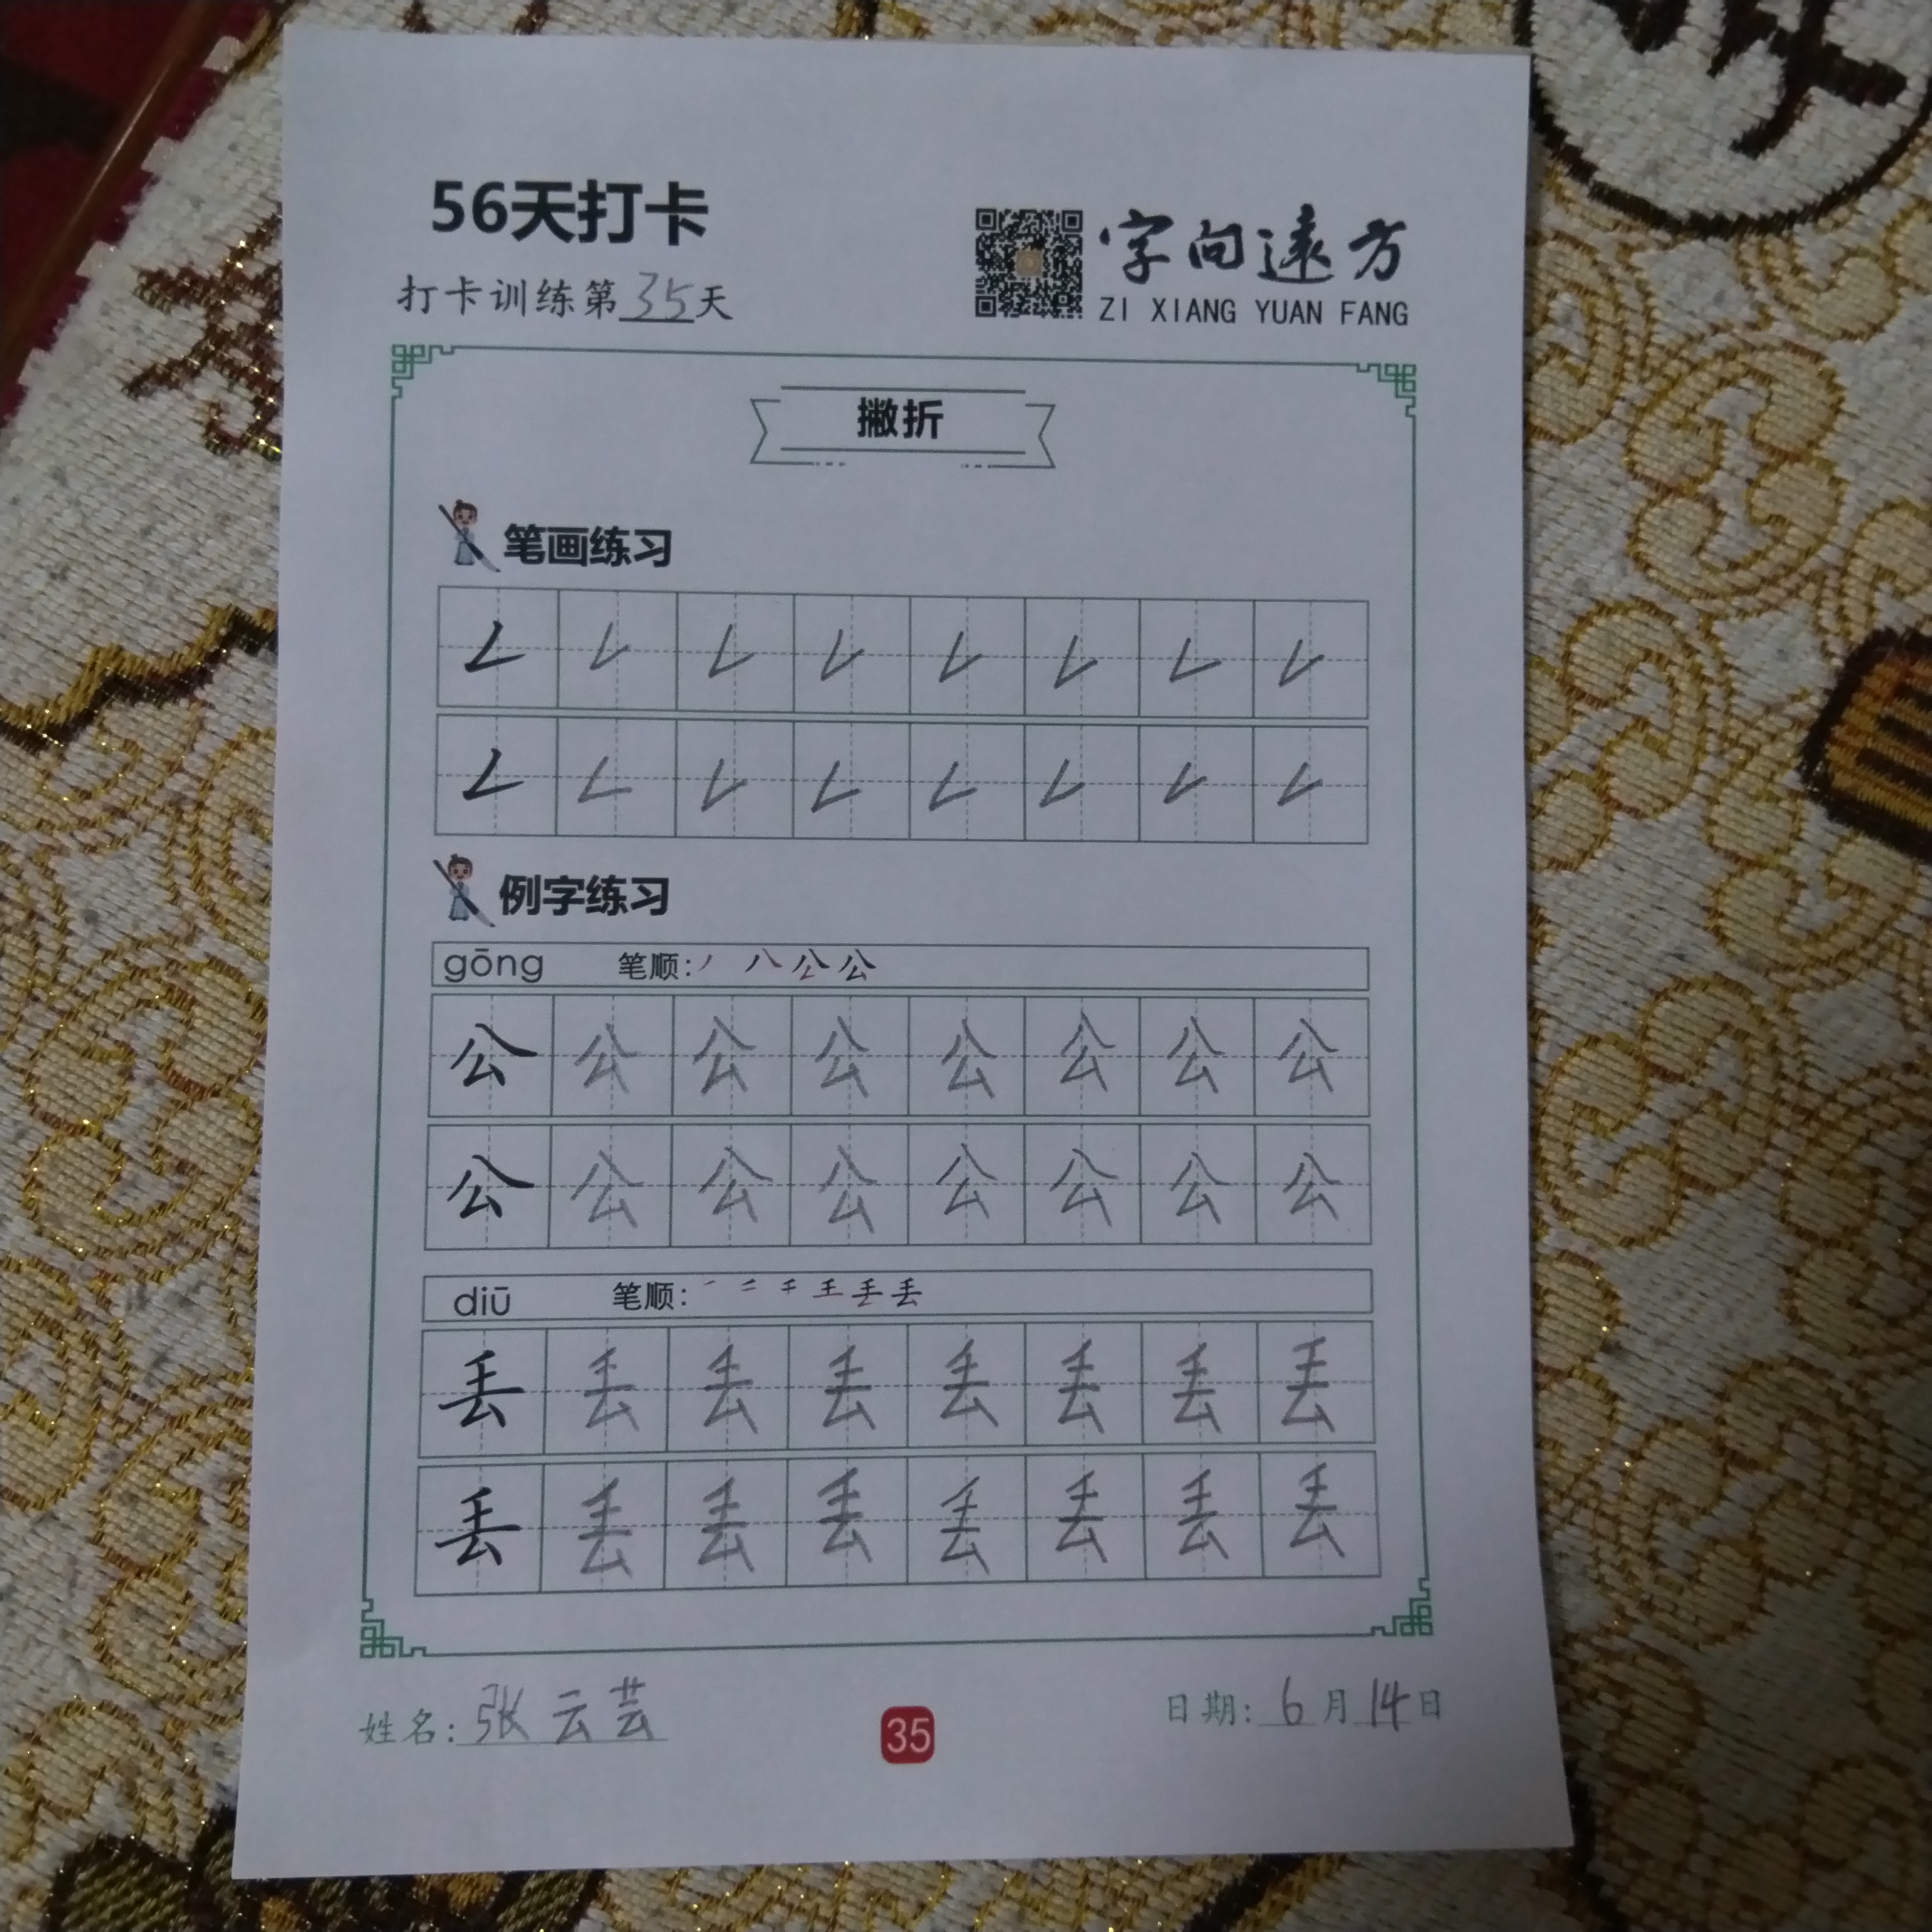 56天打卡
打卡训练第35天
字向远方
ZI XIANG YUAN FANG
撇折
笔画练习
𠃋 𠃋 𠃋 𠃋 𠃋 𠃋 𠃋 𠃋
𠃋 𠃋 𠃋 𠃋 𠃋 𠃋 𠃋 𠃋
例字练习
gōng 笔顺: 丿 八 公 公
公 公 公 公 公 公 公 公
公 公 公 公 公 公 公 公
diū 笔顺: 丢 丢
丢 丢 丢 丢 丢 丢 丢 丢
丢 丢 丢 丢 丢 丢 丢 丢
姓名: 张云芸
35
日期: 6月14日